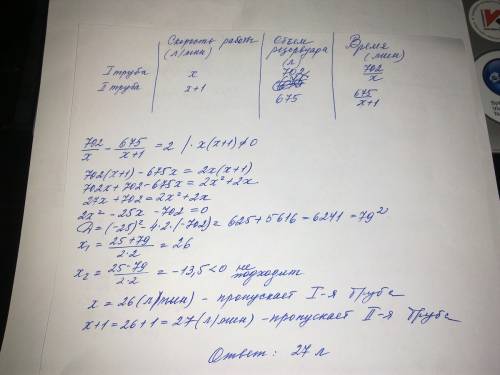 Скорость работы (л/мин) | Объем резервуара (л) | Время (мин)
I труба | x | 702 | 702/x
II труба | x+1 | 675 | 675/(x+1)
702/x - 675/(x+1) = 2 | · x(x+1) ≠ 0
702(x+1) - 675x = 2x(x+1)
702x + 702 - 675x = 2x² + 2x
27x + 702 = 2x² + 2x
2x² - 25x - 702 = 0
D = (-25)² - 4·2·(-702) = 625 + 5616 = 6241 = 79²
x₁ = (25+79)/(2·2) = 26
x₂ = (25-79)/(2·2) = -13,5 < 0 не подходит
x = 26 (л/мин) - пропускает I-я труба
x+1 = 26+1 = 27 (л/мин) - пропускает II-я труба
Ответ: 27 л